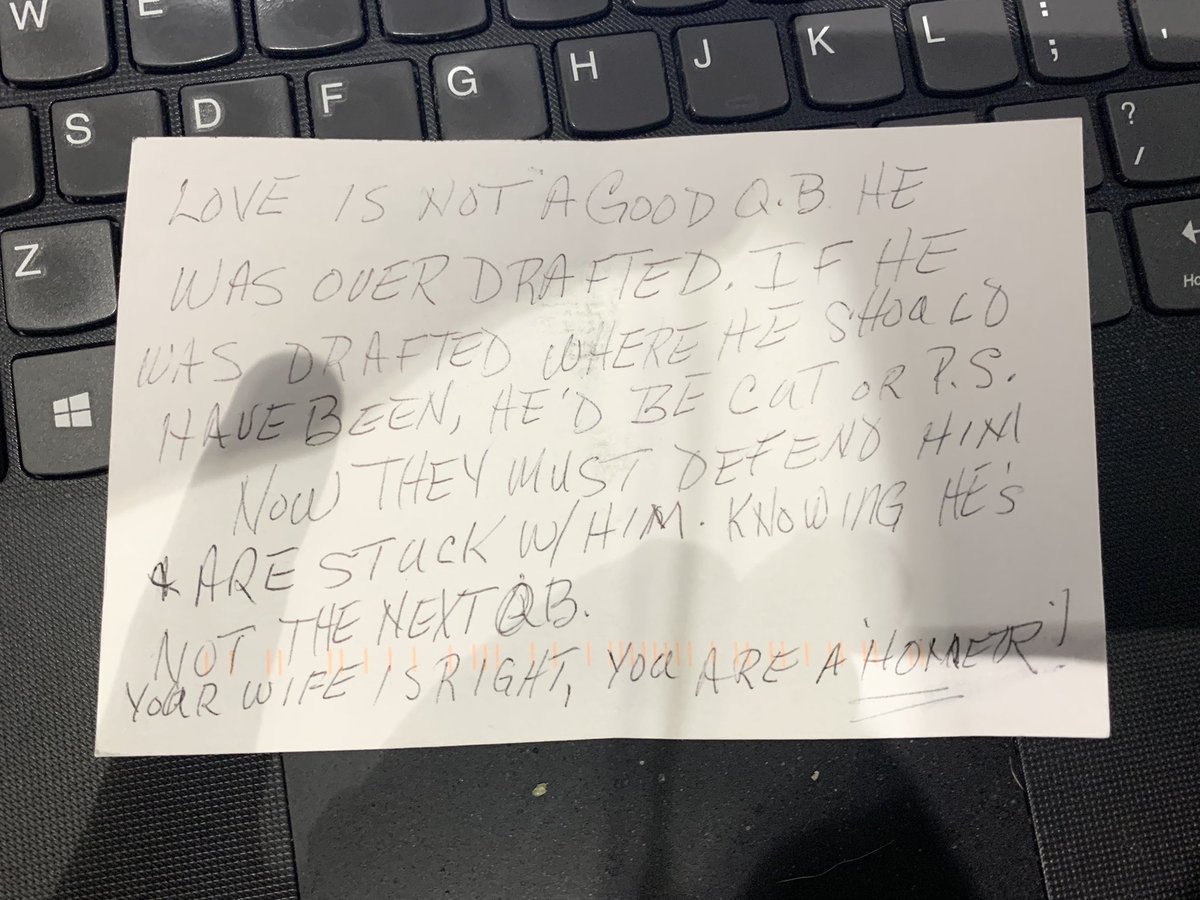 W E
S D F G H J K L : ;
Z ? /
LOVE IS NOT A GOOD Q.B. HE
WAS OVER DRAFTED. IF HE
WAS DRAFTED WHERE HE SHOULD
HAVE BEEN, HE'D BE CUT OR P.S.
NOW THEY MUST DEFEND HIM
& ARE STUCK W/ HIM. KNOWING HE'S
NOT THE NEXT QB.
YOUR WIFE IS RIGHT, YOU ARE A 'HOMER'